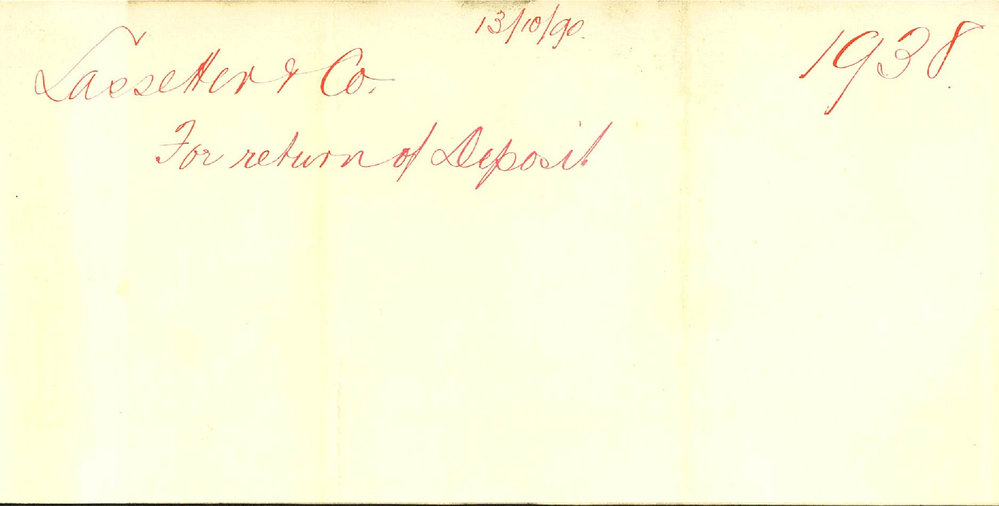 13/10/90.
1938.
Lassetter & Co.
For return of Deposit